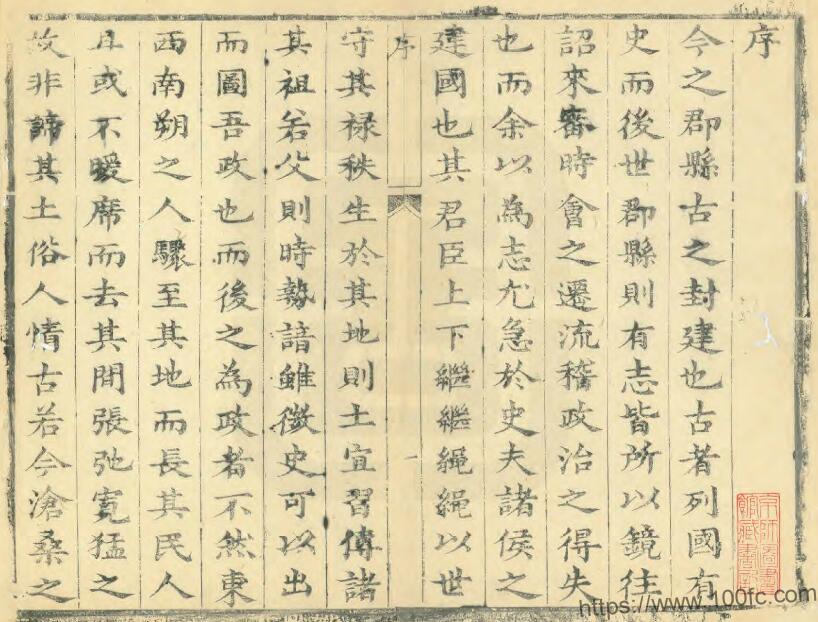 序
今之郡縣古之封建也古者列國有
史而後世郡縣則有志皆所以鏡往
詔來審時會之遷流稽政治之得失
也而余以為志尤急於史夫諸侯之
建國也其君臣上下繼繼繩繩以世
序
一
守其祿秩生於其地則土宜習傳諸
其祖若父則時勢諳雖微史可以出
而圖吾政也而後之為政者不然東
西南朔之人驟至其地而長其民人
且或不暖席而去其間張弛寬猛之
故非諦其土俗人情古若今滄桑之
https://www.100fc.com